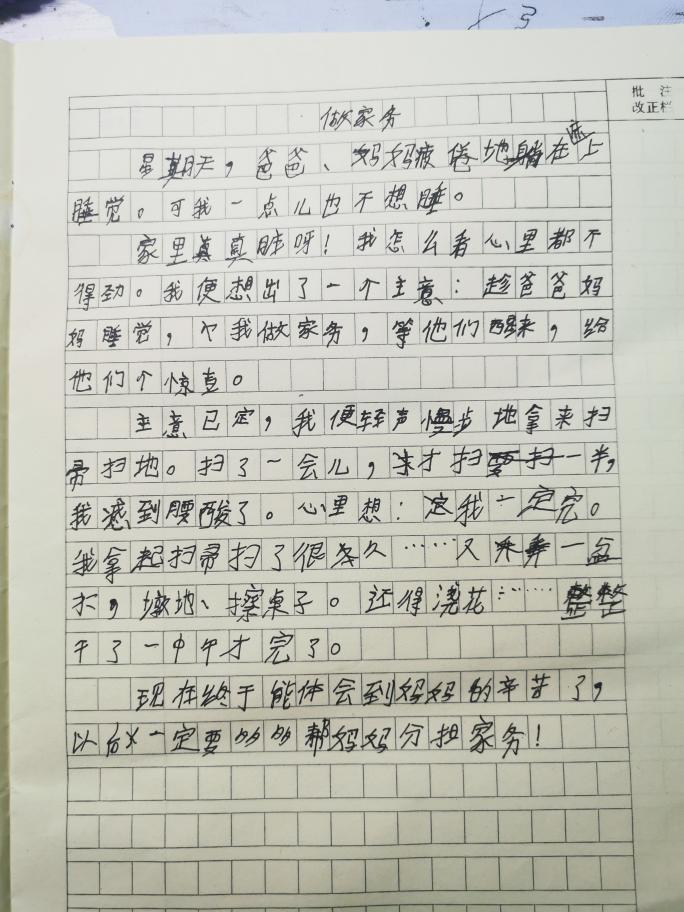 批 注
改正栏
做家务
星期天，爸爸、妈妈疲倦地躺在床上
睡觉。可我一点儿也不想睡。
家里真真脏呀！我怎么看心里都不
得劲。我便想出了一个主意：趁爸爸妈
妈睡觉，个我做家务，等他们醒来，给
他们个惊喜。
主意已定，我便轻声慢步地拿来扫
帚扫地。扫了一会儿，才扫一半，
我感到腰酸了。心里想：我一定完。
我拿起扫帚扫了很久……又一盆
水，墩地、擦桌子。还得浇花……整整
干了一中午才完了。
现在终于能体会到妈妈的辛苦了，
以后一定要多多帮妈妈分担家务！